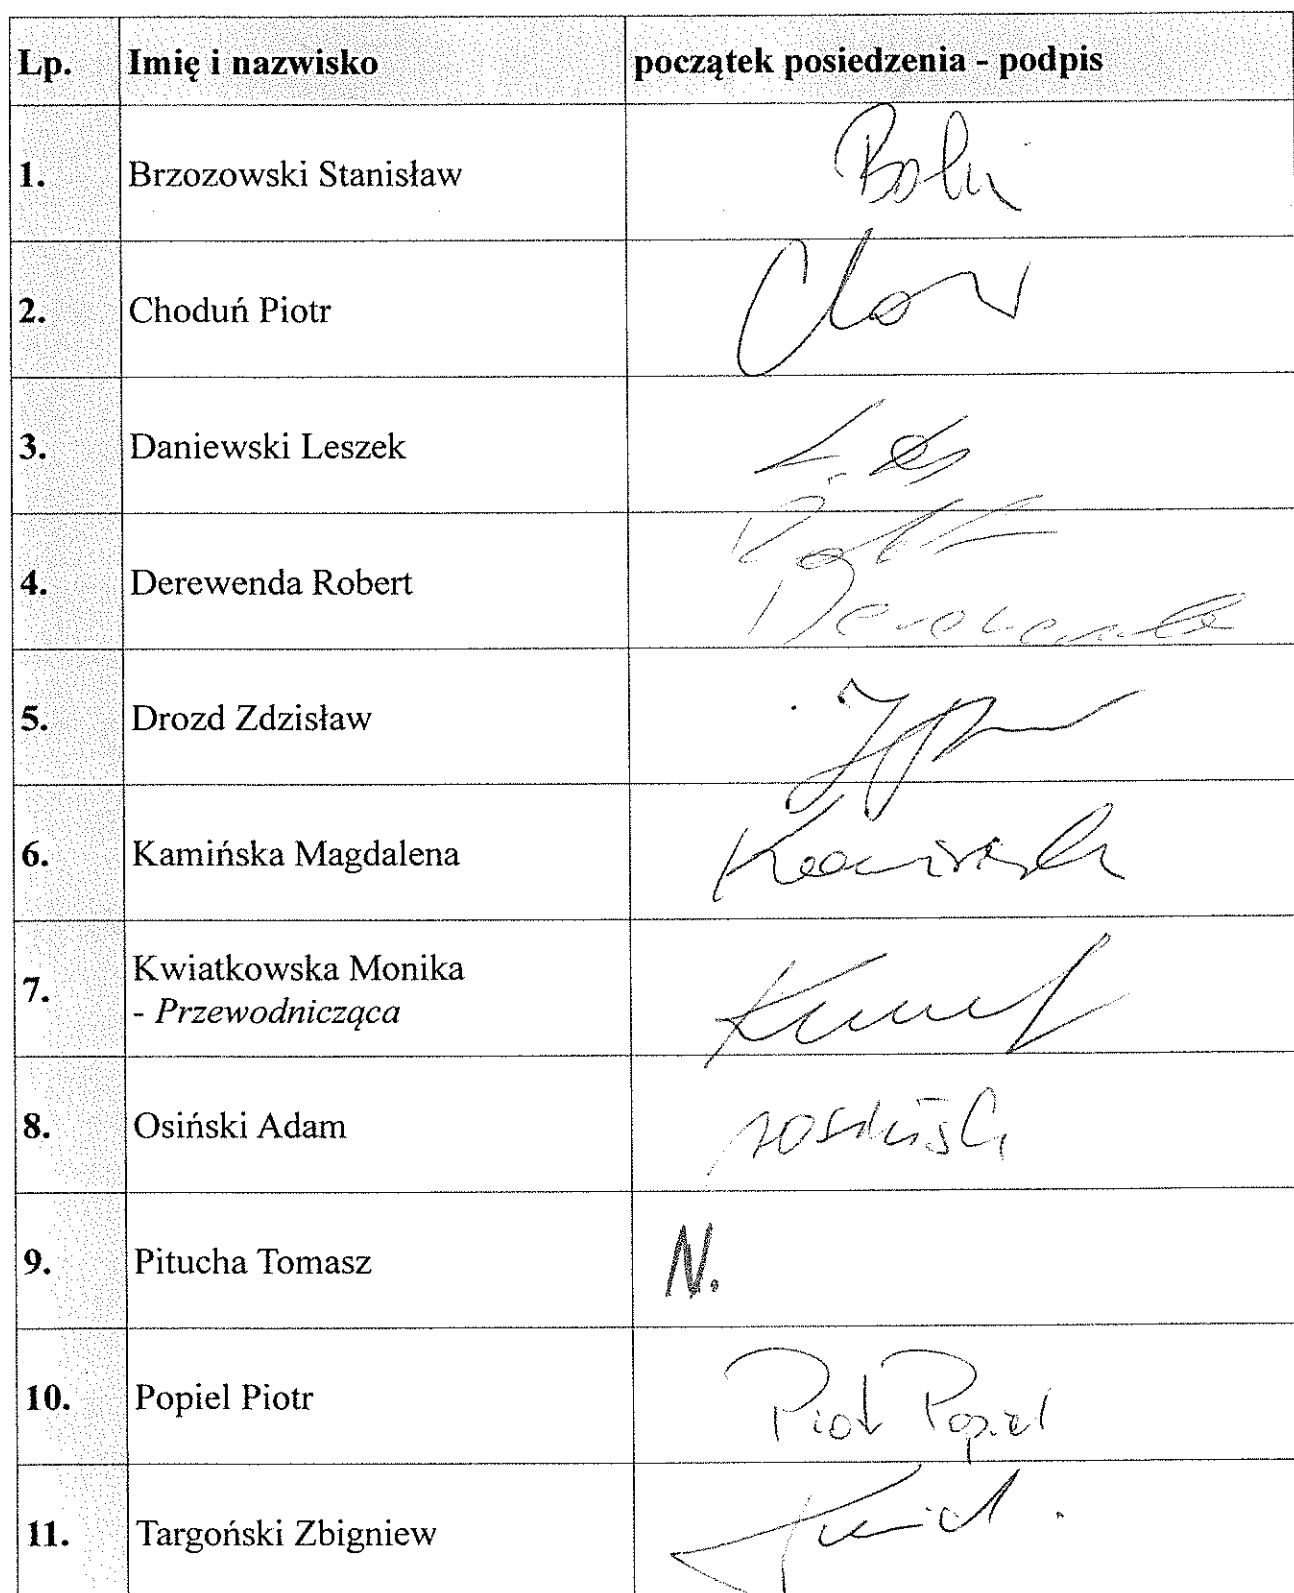 Lp. Imię i nazwisko początek posiedzenia - podpis
1. Brzozowski Stanisław
2. Choduń Piotr
3. Daniewski Leszek
4. Derewenda Robert
5. Drozd Zdzisław
6. Kamińska Magdalena
7. Kwiatkowska Monika
- Przewodnicząca
8. Osiński Adam
9. Pitucha Tomasz N.
10. Popiel Piotr Piotr Popiel
11. Targoński Zbigniew